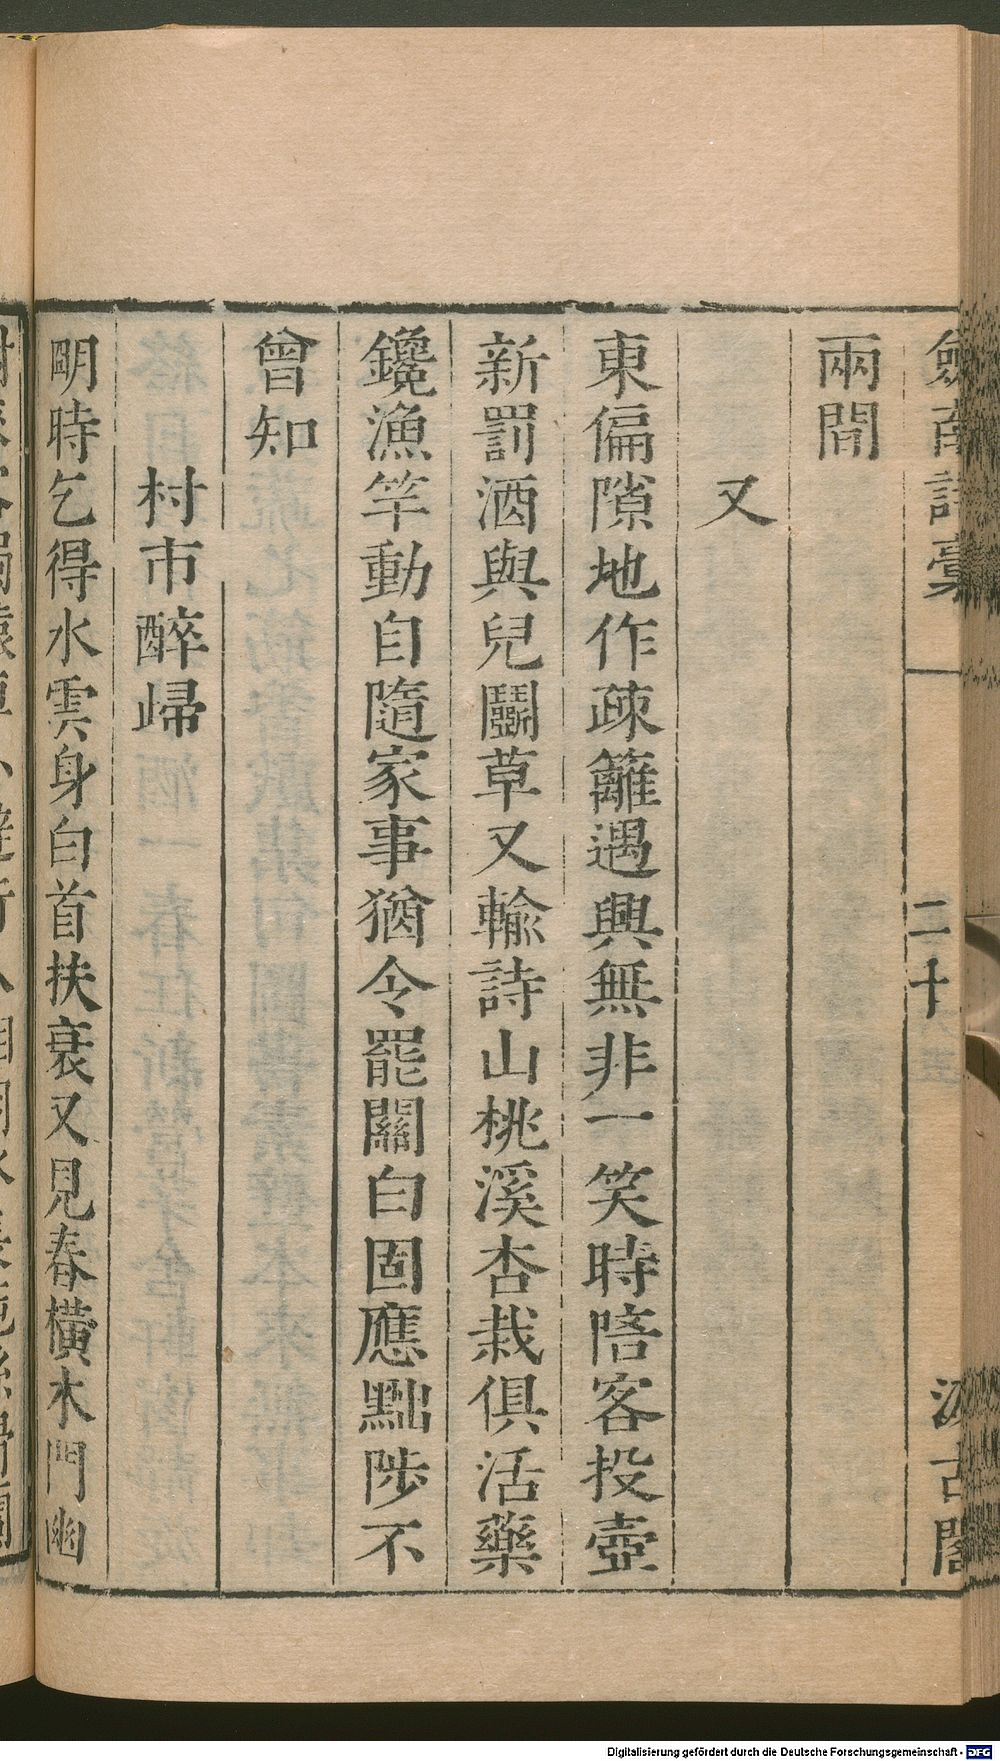 劒南詩稾
二十
汲古閣
兩閒
又
東偏隙地作疎籬遇興無非一笑時陪客投壺
新罰酒與兒鬭草又輸詩山桃溪杏栽俱活藥
鑱漁竿動自隨家事猶令罷關白固應黜陟不
曾知
村市醉歸
明時乞得水雲身白首扶衰又見春橫木門幽
Digitalisierung gefördert durch die Deutsche Forschungsgemeinschaft - DFG